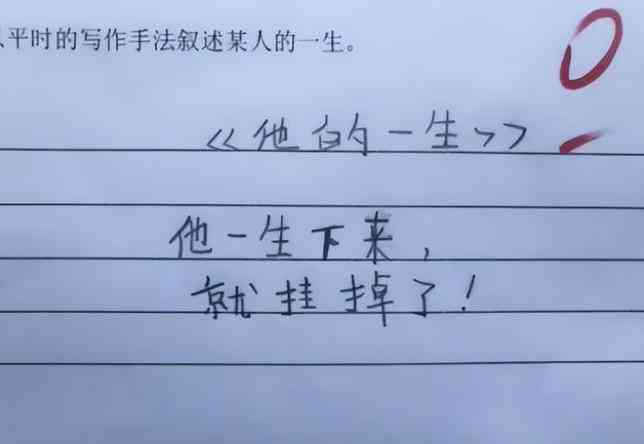 平时的写作手法叙述某人的一生。
0
《他的一生》
他一生下来，
就挂掉了！